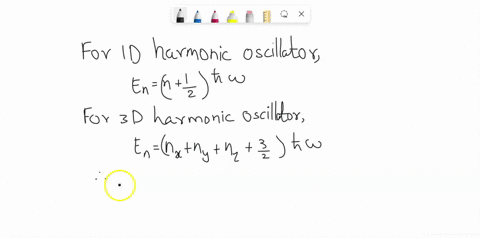 For 1D harmonic oscillator,
Eₙ=(n+1/2)ħω
For 3D harmonic oscilldtor,
Eₙ=(nₓ+nᵧ+n_z+3/2)ħω
∴